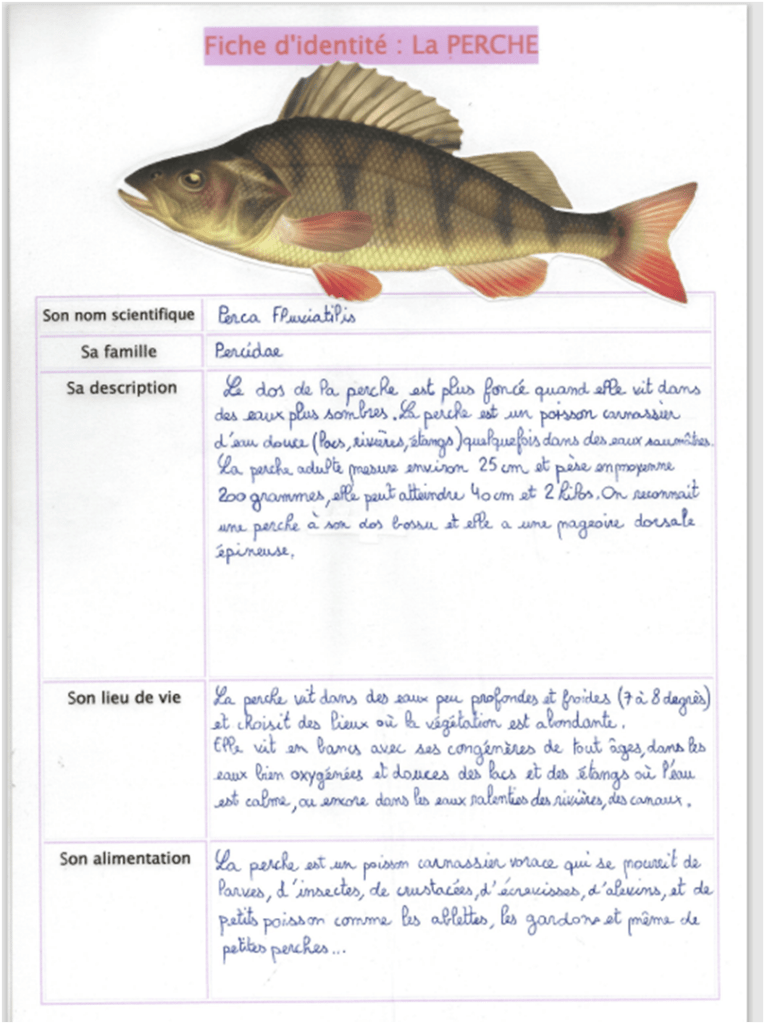 Fiche d'identité : La PERCHE
Son nom scientifique
Perca Fluviatilis
Sa famille
Percidae
Sa description
Le dos de la perche est plus foncé quand elle vit dans
des eaux plus sombres. La perche est un poisson carnassier
d'eau douce (lacs, rivières, étangs) quelquefois dans des eaux saumâtres.
La perche adulte mesure environ 25 cm et pèse en moyenne
200 grammes, elle peut atteindre 40 cm et 2 kilos. On reconnait
une perche à son dos bossu et elle a une nageoire dorsale
épineuse.
Son lieu de vie
La perche vit dans des eaux peu profondes et froides (7 à 8 degrès)
et choisit des lieux où la végétation est abondante.
Elle vit en bancs avec ses congénères de tout âges, dans les
eaux bien oxygénées et douces des lacs et des étangs où l'eau
est calme, ou encore dans les eaux ralenties des rivières, des canaux.
Son alimentation
La perche est un poisson carnassier vorace qui se nourrit de
larves, d'insectes, de crustacées, d'écrevisses, d'alevins, et de
petits poisson comme les ablettes, les gardons et même de
petites perches...